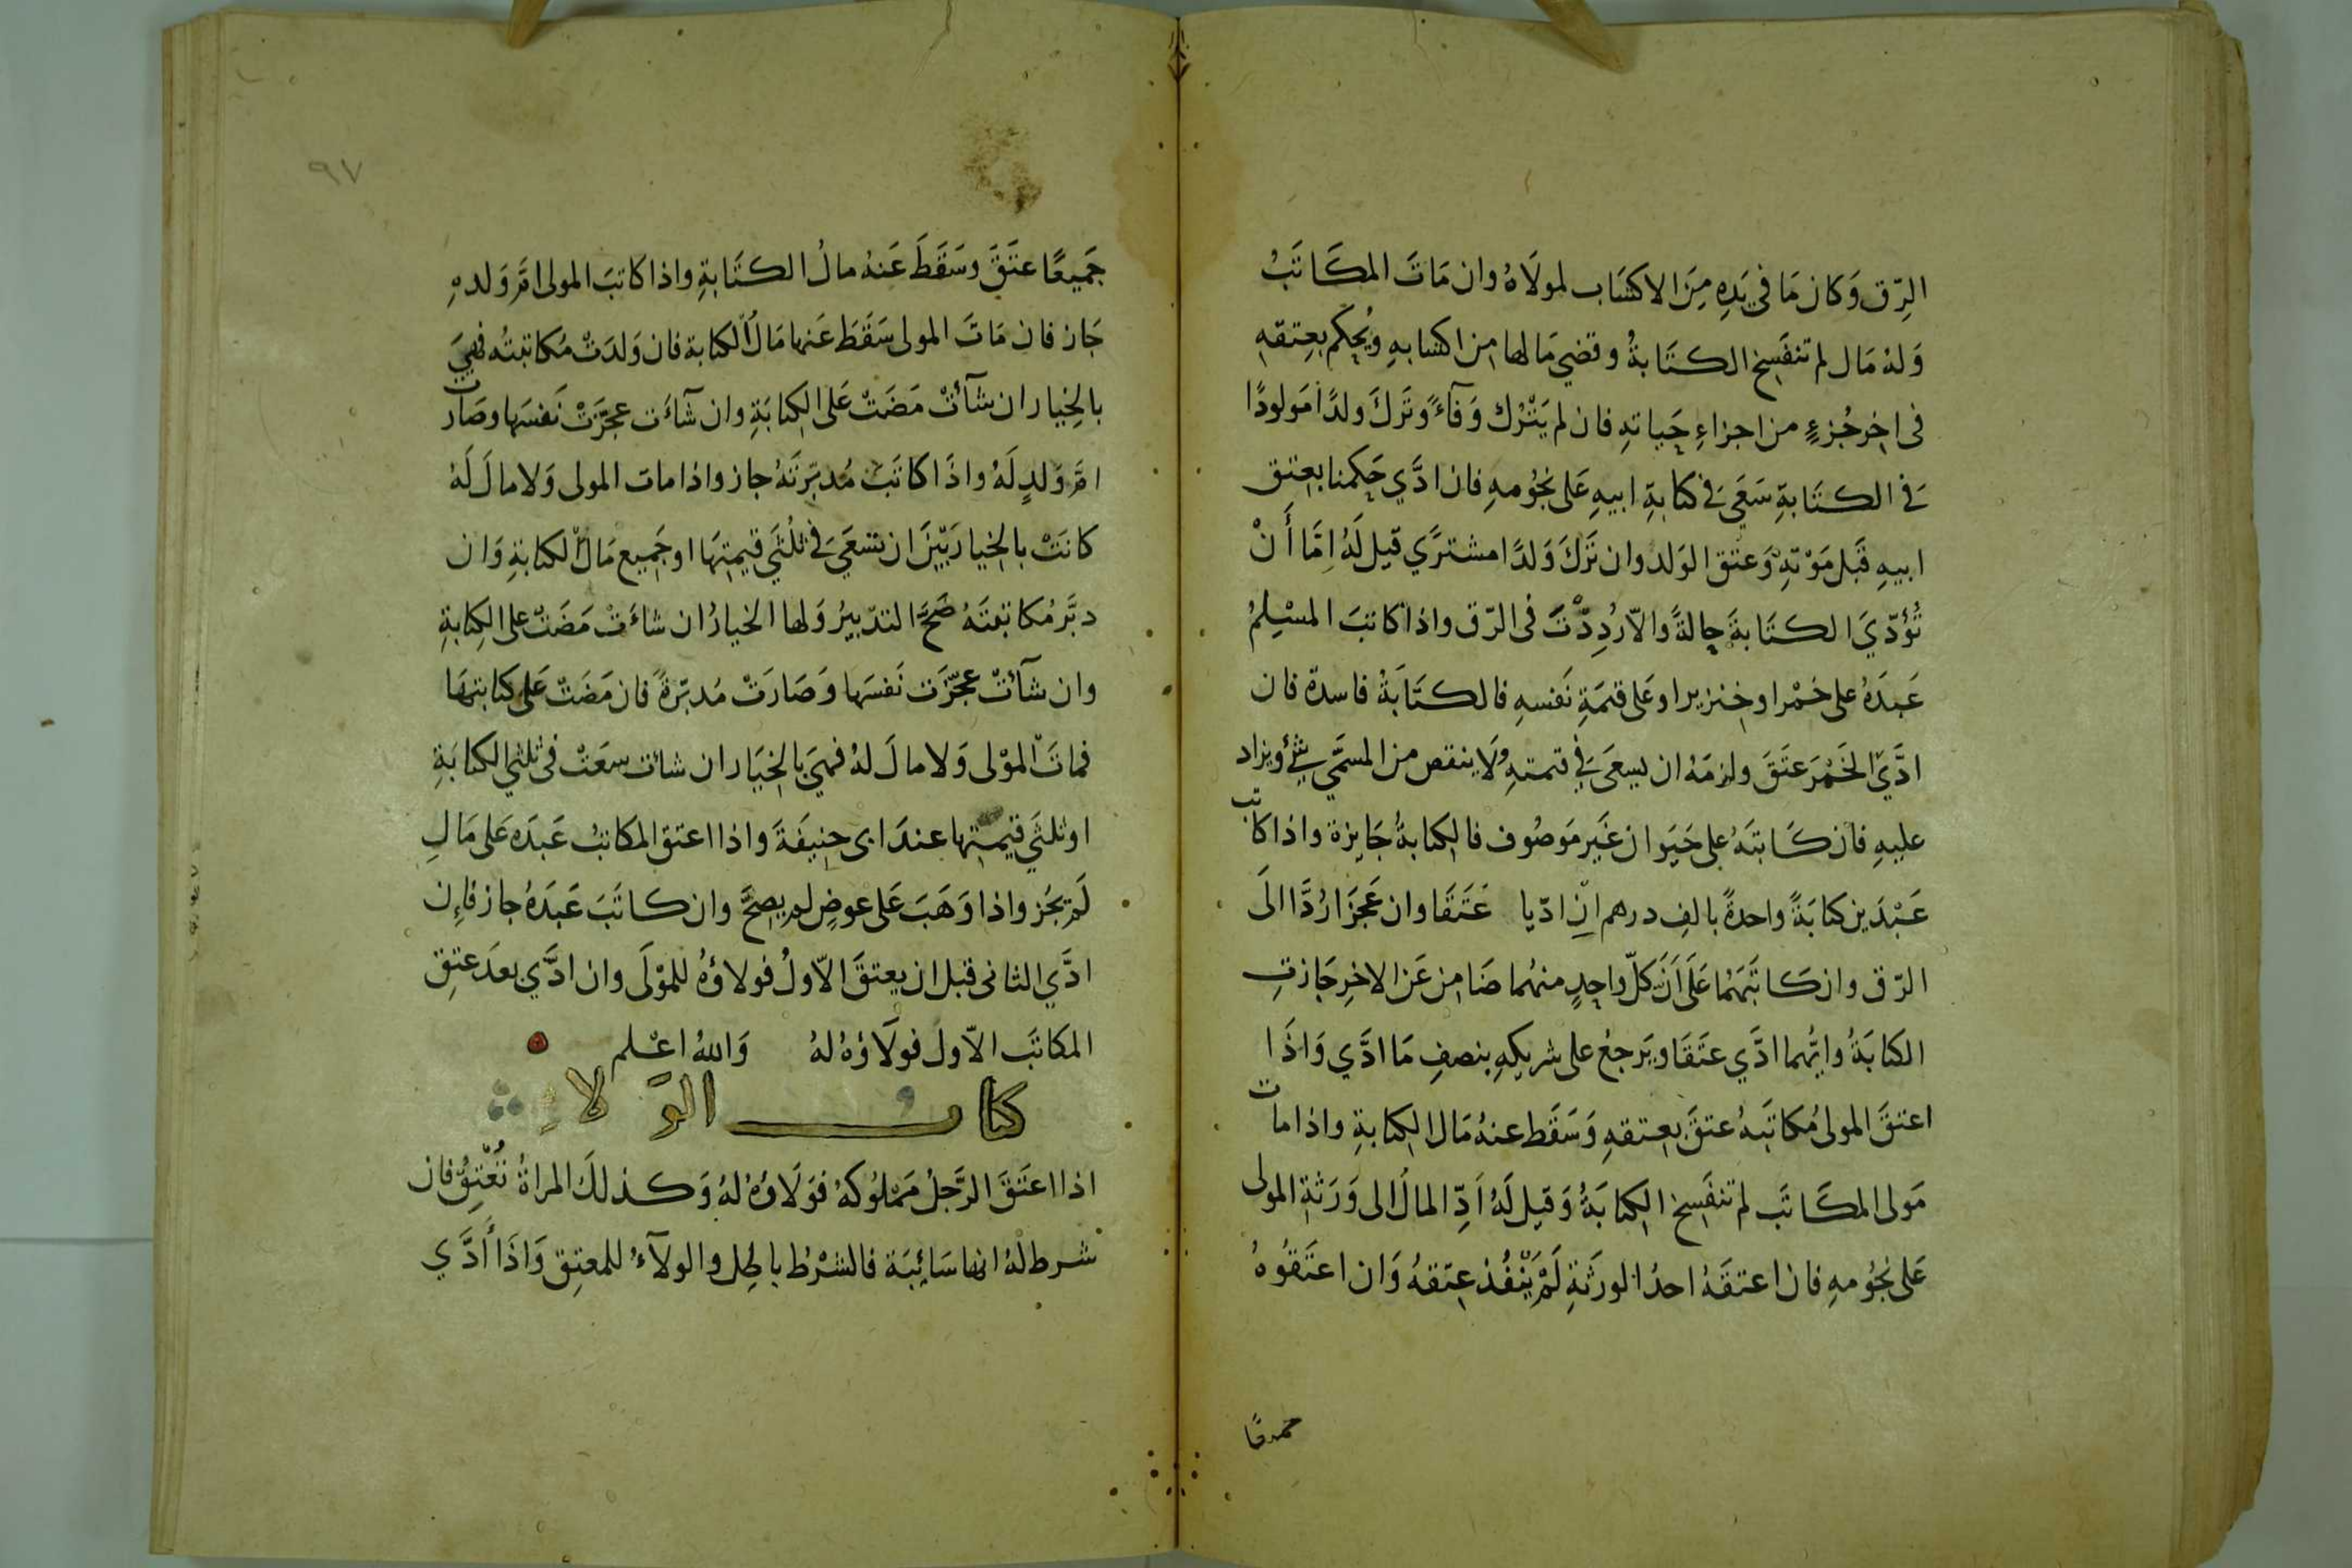 الرِّق وَكان مَا في يَدِه مِنَ الاكسَاب لمولَاهُ وان مَاتَ المكَاتَبُ
وَلهُ مَال لم تنفَسِخ الكتَابةُ وقضي مَا لها من اكسابهِ ويُحكَم بعِتقهِ
في اخِر جُزءٍ من اجزاءِ حَياتهِ فان لم يَتْرُك وَفآءً وتَركَ ولدًا مَولودًا
في الكتَابةِ سَعَي في كتابةِ ابيهِ عَلى نجُومهِ فان ادَّي حَكمنا بعِتق
ابيهِ قَبل مَوْتهِ وَعتق الوَلد وان تَركَ وَلدًا مشترَي قيل لَهُ اِمَّا أَنْ
تُؤدّيَ الكتَابةَ حالةً والاّ رُدِدْتَ في الرّق واذا كاتبَ المسْلِمُ
عَبدَهُ على خَمْر او خِنزير او عَلى قيمَةِ نَفسهِ فالكتَابةُ فاسدة فان
ادَّيَ الخَمْرَ عتَقَ ولزمَهُ ان يسعَي في قيمتهِ وَلَا ينقص من المسَمَّي شئٌ ويزاد
عليهِ فان كَاتبَهُ على حَيَوان غَير مَوصُوف فالكتابةُ جَايزة واذا كاتب
عَبْدَين كتابَةً واحدةً بالفِ درهم ان ادّيا عَتَقَا وان عَجَزَا رُدَّا الَى
الرّق وان كَاتَبَهُمَا عَلَى اَنَّ كلّ واحِدٍ منهُما ضَامِن عَن الاخِرِ جَازتِ
الكتابَةُ وايُّهما ادَّي عتَقَا ويَرجعُ على شريكهِ بنصفِ مَا ادَّي وَاذَا
اعتقَ المولى مُكاتَبهُ عتقَ بعِتقهِ وَسَقَط عنهُ مَال الكتابةِ واذا مات
مَولى المكَاتَب لم تنفَسِخ الكتابَةُ وَقيل لَهُ اَدِّ المالَ الى وَرَثةِ المولى
عَلى نجُومهِ فان اعتقَهُ احدُ الورَثةِ لَمْ يَنْفُذ عِتقهُ وَان اعتَقُوهُ
جَميعًا عتَقَ وسَقَطَ عَنهُ مالُ الكتَابةِ واذا كاتبَ المولى امَّ وَلدهِ
جَاز فان مَاتَ المولى سَقَطَ عَنها مَالُ الكتابة فان وَلدَتْ مُكاتبتُه فهيَ
بالخِيار ان شآءتْ مَضَتْ عَلى الكتابَةِ وان شآءَت عجّزَتْ نَفسَها وصَارت
امَّ وَلدٍ لَهُ واذَا كاتَبَ مُدبّرتَهُ جاز واذا مات المولى وَلا مالَ لَهُ
كانَتْ بالخِيار بَيْنَ ان تسعَيَ في ثلُثَي قيمتِهَا او جَمِيع مَال الكتابةِ وَان
دبَّر مُكاتبتَهُ صَحَّ التدبيرُ وَلها الخيارُ ان شاءَتْ مَضَتْ على الكِتابةِ
وان شآءتْ عجّزَت نَفسَها وَصَارَتْ مُدبّرةً فان مَضَتْ عَلى كتابتهَا
فماتَ المَوْلى وَلا مالَ لهُ فهيَ بالخيَار ان شات سعَتْ في ثلثي الكتابَةِ
او ثلثَي قيمتِها عندَ ابي حنيفَةَ واذا اعتق المكاتبُ عَبدَه عَلى مَالٍ
لَم يَجُز واذا وَهَبَ عَلى عوضٍ لم يصحَّ وان كاتَبَ عَبدَهُ جاز فإن
ادَّي الثاني قبل ان يعتقَ الاّولُ فولاؤهُ للمَوْلَى وان ادَّي بعدَ عتِق
المكاتَب الاّول فولَاؤهُ لهُ وَاللهُ اعْلم
كتاب الوَلاء
اذا اعتَقَ الرَّجلُ مَمْلوُكهُ فوَلَاؤهُ لهُ وَكذلكَ المراةُ تُعْتِقُ فان
شرط لهُ انها سَائِبَة فالشرْطُ باطِل والولآءُ للمعتِق وَاذَا أدَّي